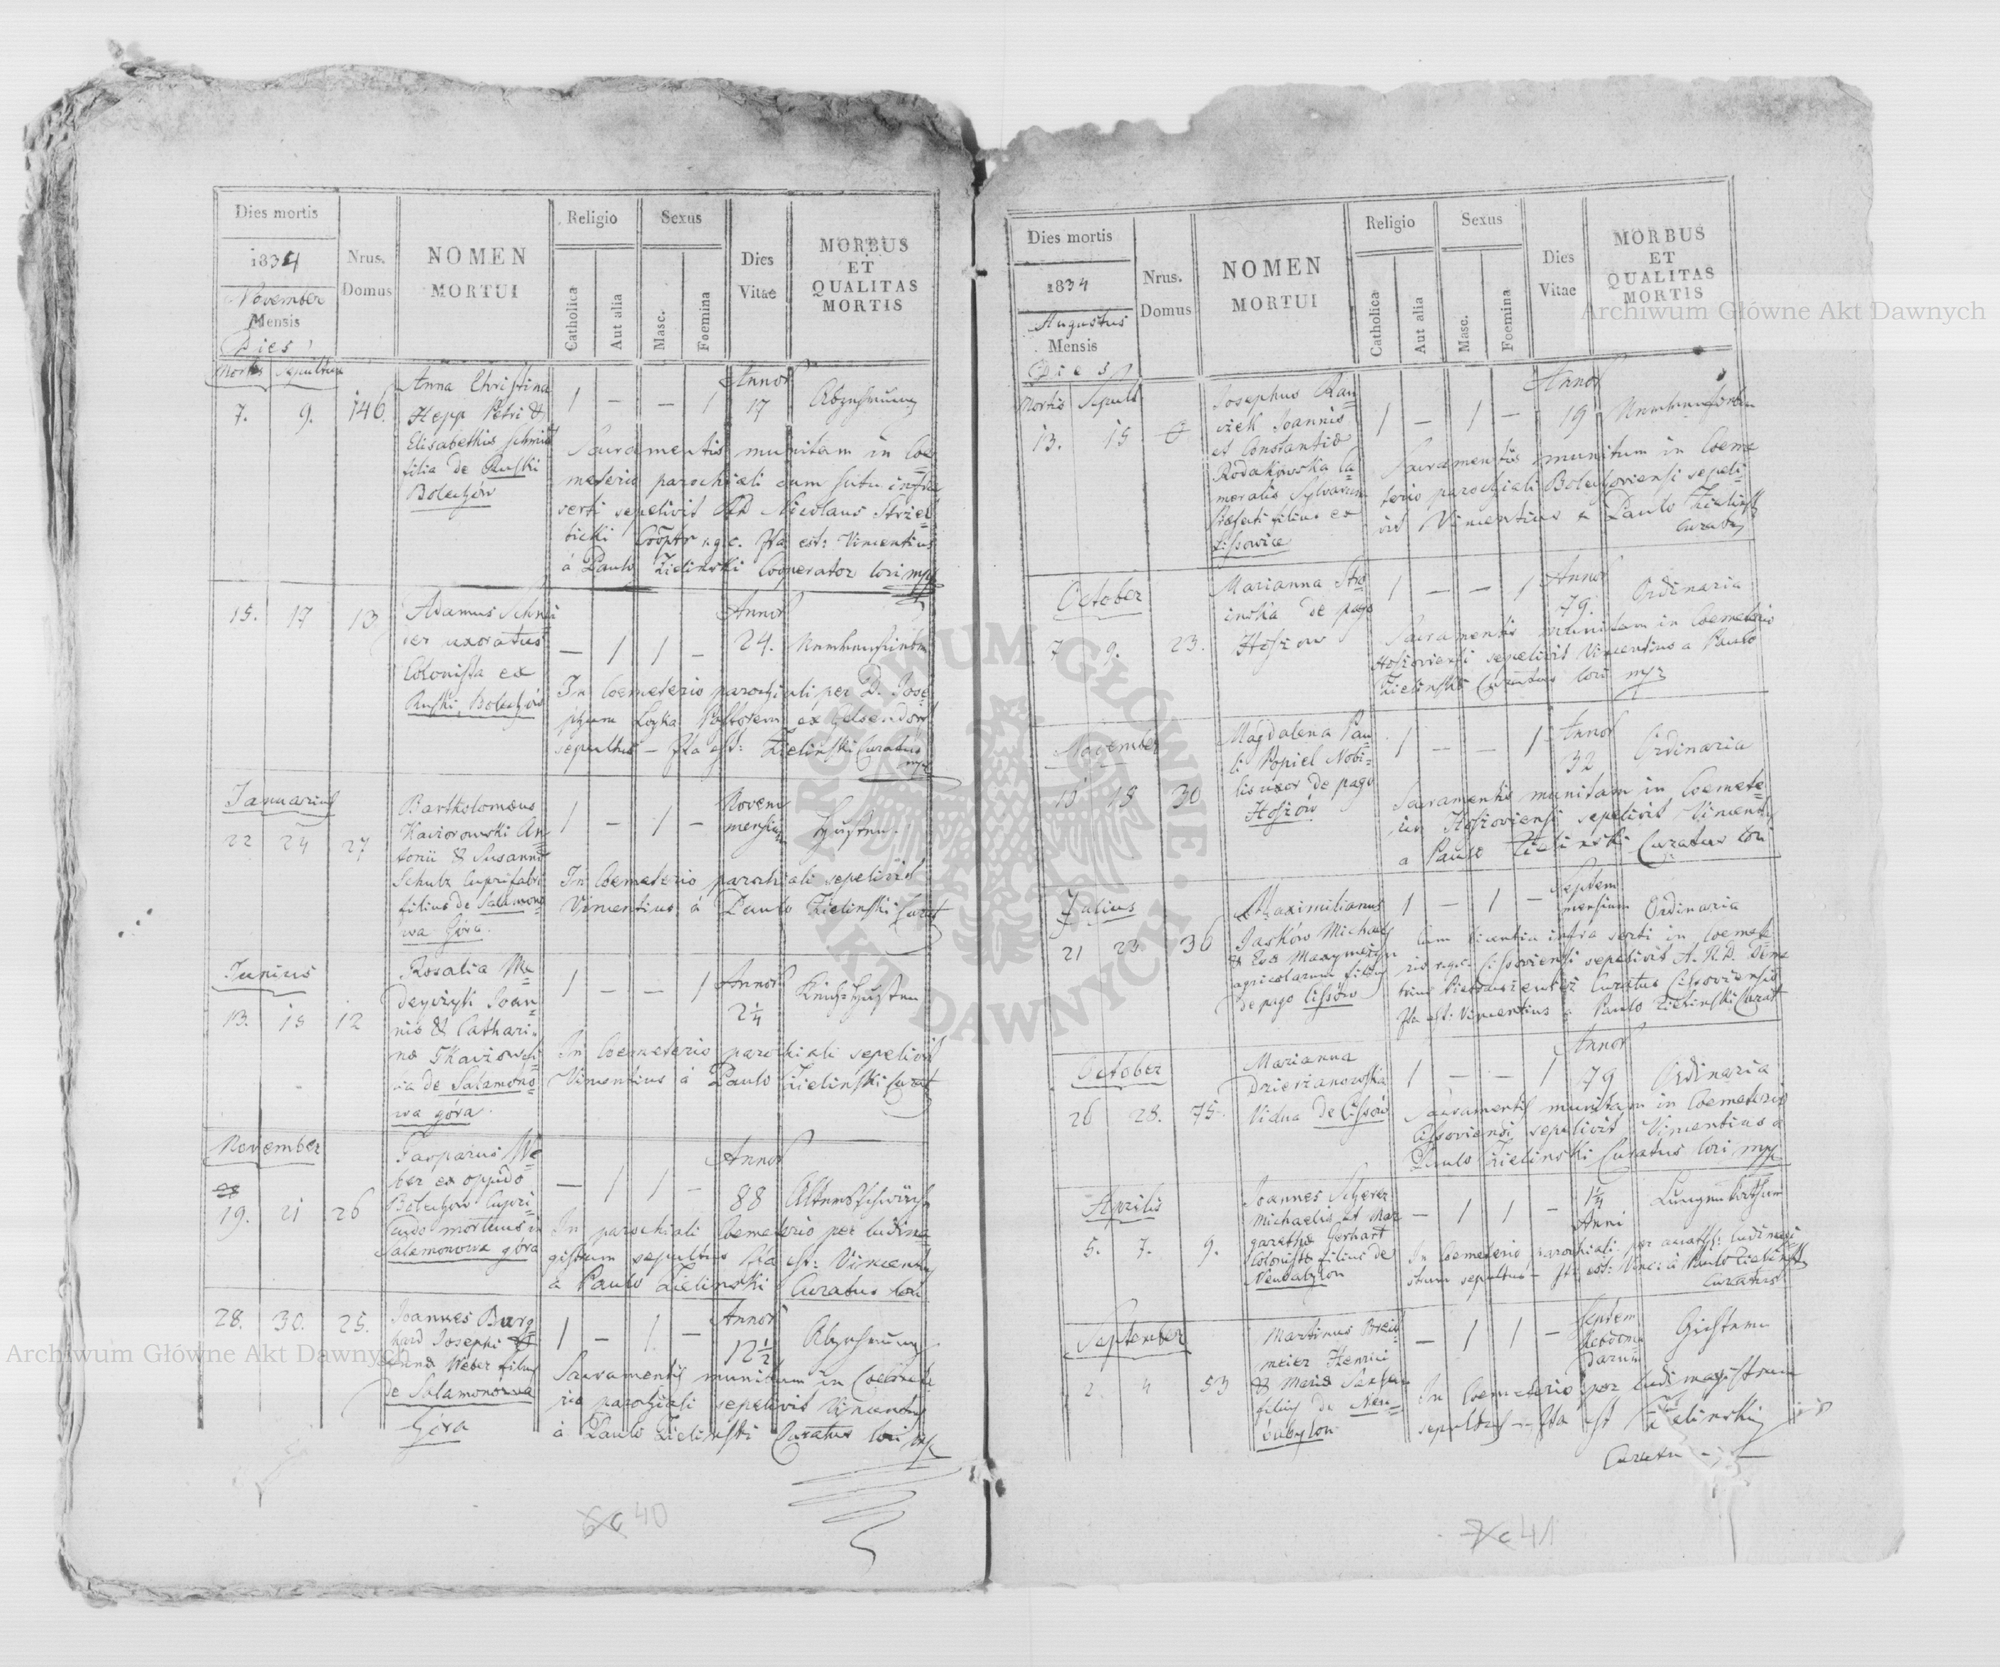 Dies mortis
1834
November
Mensis
Dies
Mortis Sepultur
Nrus.
Domus
NOMEN
MORTUI
Religio
Catholica
Aut alia
Sexus
Masc.
Foemina
Dies
Vitae
MORBUS
ET
QUALITAS
MORTIS
7. 9. 146.
Anna Christina
Hepp Petri &
Elisabethis Schmid
filia de Ruski
Bolechów
1 — — 1
Annor
17
Abzehrung
Sacramentis munitam in Coe
meterio parochiali cum
sepelivit Nicolaus
Ita est: Vincentius
à Paulo Zielinski Cooperator loci mpp
15. 17 13
Adamus Schnei
der uxoratus
Colonista ex
Ruski Bolechów
— 1 1 —
Annor
24.
In Coemeterio parochiali per D. Jose
phum Pastorem ex Gelsendorf
sepultus — Ita est: Zielinski Curatus
mpp
Januarius
22 24 27
Bartholomaeus
Kaziorowski An
tonii & Susanna
Schulz Cuprifabri
filius de Salamono
wa Góra.
1 — 1 —
Novem
mensium
Husten.
In Coemeterio parochiali sepelivit
Vincentius à Paulo Zielinski Curat
Junius
13. 15 12
Rosalia Me
Joan
nis & Cathari
na
de Salamono
wa góra.
1 — — 1
Annor
2¼
Keichhusten
In Coemeterio parochiali sepelivit
Vincentius à Paulo Zielinski Curat
November
19. 21 26
Casparus We
ber ex opido
Bolechow Cupri
cudo mortuus in
Salamonowa góra
— 1 1 —
Annor
88
Altersschwäche
In parochiali Coemeterio per ludima
gistrum sepultus Ita est: Vincenty
à Paulo Zielinski Curatus loci
28. 30. 25.
Joannes Burg
hard Josephi &
Anna Weber filius
de Salamonowa
Góra
1 — 1 —
Annor
12½
Abzehrung
Sacramentis munitum in Coemete
rio parochiali sepelivit Vincenty
à Paulo Zielinski Curatus loci mpp
40
Dies mortis
1834
Augustus
Mensis
Dies
Mortis Sepult
Nrus.
Domus
NOMEN
MORTUI
Religio
Catholica
Aut alia
Sexus
Masc.
Foemina
Dies
Vitae
MORBUS
ET
QUALITAS
MORTIS
13. 15
Josephus
Joannis
et Constantia
Rodakowska Ca
meralis Sylvarum
Praefecti filius ex
Lissowice
1 — 1 —
Annor
19
Sacramentis munitum in Coeme
terio parochiali Bolechoviensi sepeli
vit Vincentius a Paulo Zielinski
Curatus
October
7 9. 23.
Marianna
de pago
Hoszow
1 — — 1
Annor
79.
Ordinaria
Sacramentis munitam in Coemeterio
Hoszoviensi sepelivit Vincentius a Paulo
Zielinski Curatus loci mpp
November
18 30
Magdalena Pau
li Popiel Nobi
lis uxor de pago
Hoszów
1 — — 1
Annor
32
Ordinaria
Sacramentis munitam in Coemete
rio Hoszoviensi sepelivit Vincenti
a Paulo Zielinski Curatus loci
Julius
21 23. 36
Maximilianus
Jasków Michael
& Eva
agricolarum filius
de pago Lissów
1 — 1 —
Septem
mensium
Ordinaria
Cum licentia infra scti in Coemete
rio r.g.c. Lissoviensi sepelivit A. R. D. Deme
trius Curatus Lissoviensis
Ita est: Vincentius a Paulo Zielinski Curat
October
26 28. 75.
Marianna
Dzierzanowska
Vidua de Lissów
1 — — 1
Annor
79
Ordinaria
Sacramentis munitam in Coemeterio
Lissoviensi sepelivit Vincentius a
Paulo Zielinski Curatus loci mpp
Aprilis
5. 7. 9.
Joannes Scherer
Michaelis et Mar
garetha Gerhart
Colonista filius de
Neubabylon
— 1 1 —
1¼
Anni
In Coemeterio parochiali per ludimagi
strum sepultus — It: est: Vinc: à Paulo Zielinski
Curatus
September
2. 4 53
Martinus Brei
meier Henrici
& Maria
filius de Neu
babylon.
— 1 1 —
Septem
hebdoma
darum
In Coemeterio per ludimagistrum
sepultus — Ita est Zielinski
Curatus
41
Archiwum Główne Akt Dawnych
Archiwum Główne Akt Dawnych
ARCHIWUM GŁÓWNE AKT DAWNYCH